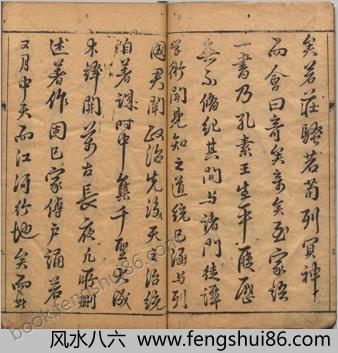 矣若莊騷若荀列冥禪
而會曰奇矣奇矣至家語
一書乃孔素王生平履歷
無不備紀其間與諸門徒譚
學術聞見知之道統已涵與列
國君闡政治先後天之治統
陶著謀時中集千聖大成
木鐸開萬古長夜凡所刪
述著作固已家傳户誦若
日月中天而江河行地矣而
风水八六 www.fengshui86.com